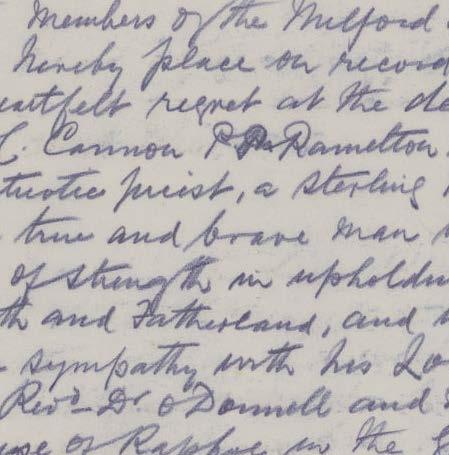 Members of the Milford
hereby place on record
eartfelt regret at the de
C. Cannon P.P. Ramelton
triotic priest, a sterling
true and brave man
of strength in upholdin
th and Fatherland, and
sympathy with his Lo
Revd Dr. O'Donnell and
of Raphoe in the